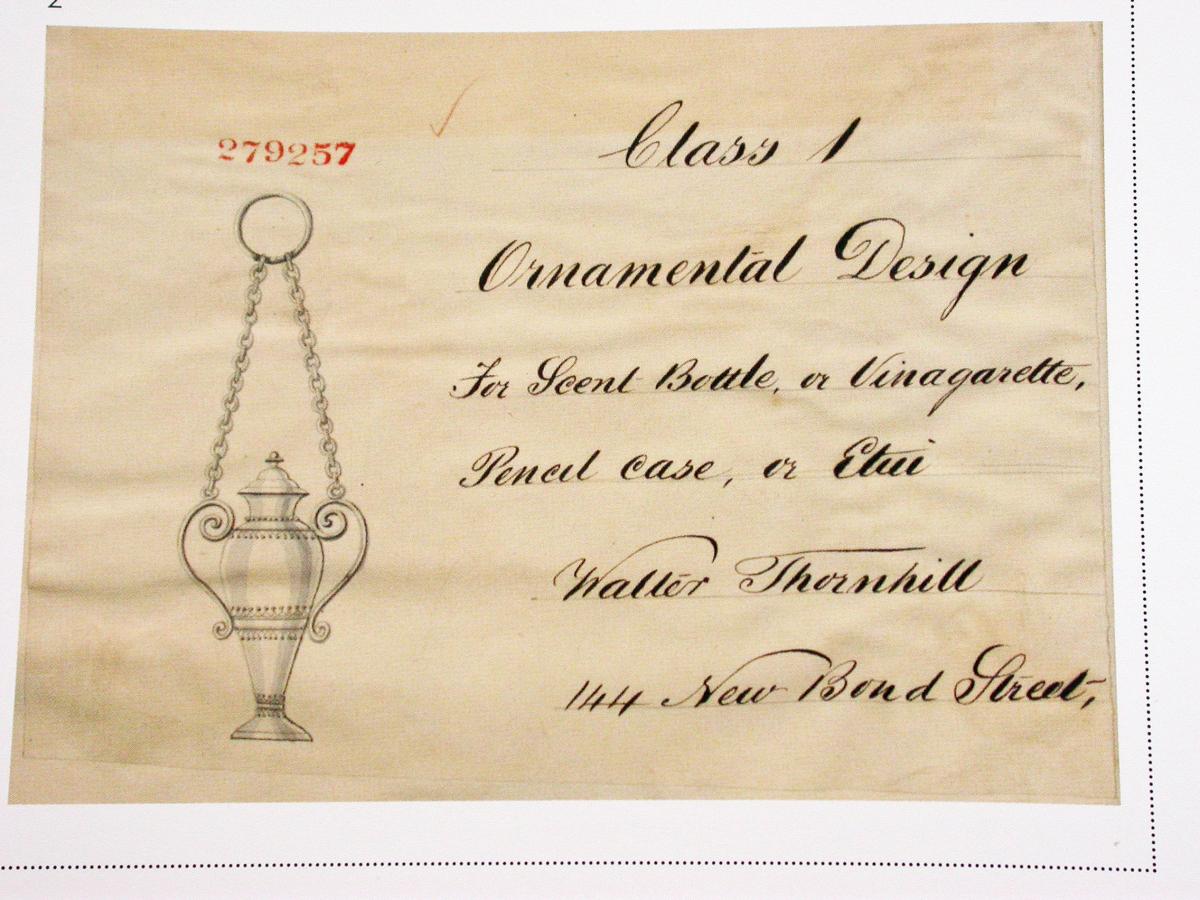 279257
Class 1
Ornamental Design
For Scent Bottle, or Vinagarette,
Pencil case, or Etui
Walter Thornhill
144 New Bond Street,